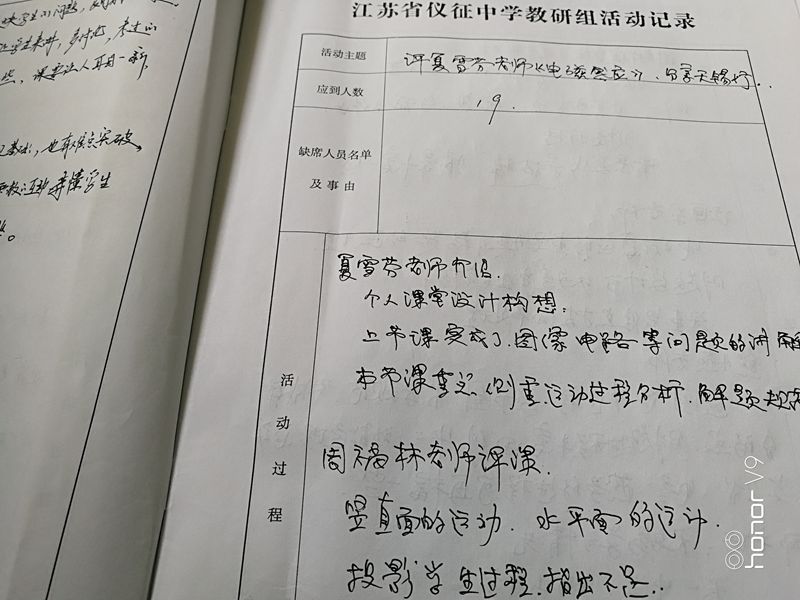 缺学生的问题,
些,课要让人耳目一新,
也有难点突破,
江苏省仪征中学教研组活动记录
活动主题
评夏雪芬老师《电磁感应》,
应到人数
19.
缺席人员名单
及事由
活动过程
夏雪芬老师介绍.
个人课堂设计构想:
上节课完成了.图像 电路等问题的讲解
本节课重点 侧重运动过程分析.解题规范
周福林老师评课.
竖直面的运动. 水平面的运动.
投影学生过程.指出不足..
honor V9